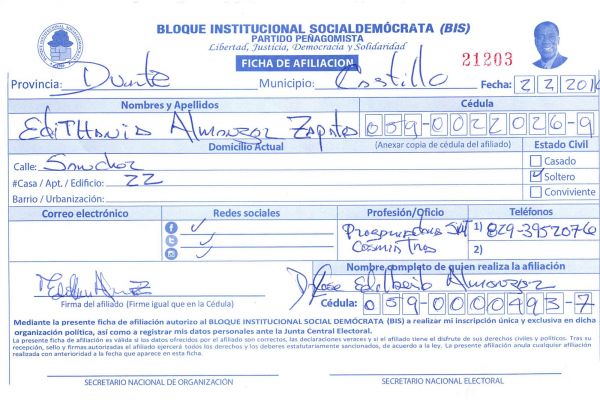 BLOQUE INSTITUCIONAL SOCIALDEMÓCRATA (BIS)
PARTIDO PEÑAGOMISTA
Libertad, Justicia, Democracia y Solidaridad
FICHA DE AFILIACION
21203
Provincia: Duarte Municipio: Castillo Fecha: 2 2 201
Nombres y Apellidos Cédula
Edithania Almanzar Zapata 059-0022026-9
Domicilio Actual (Anexar copia de cédula del afiliado) Estado Civil
Calle: Sanchez Casado
#Casa / Apt. / Edificio: 22 Soltero
Barrio / Urbanización: Conviviente
Correo electrónico Redes sociales Profesión/Oficio Teléfonos
1) 829-3952076
2)
Nombre completo de quien realiza la afiliación
Jose Edilberto Almanzar
Firma del afiliado (Firme igual que en la Cédula) Cédula: 059-0000493-7
Mediante la presente ficha de afiliación autorizo al BLOQUE INSTITUCIONAL SOCIAL DEMÓCRATA (BIS) a realizar mi inscripción única y exclusiva en dicha
organización política, así como a registrar mis datos personales ante la Junta Central Electoral.
La presente ficha de afiliación es válida si los datos ofrecidos por el afiliado son correctos, las declaraciones veraces y si el afiliado tiene el disfrute de sus derechos civiles y políticos. Tras su
recepción, sello y firmas autorizadas el afiliado ejercerá todos los derechos y los deberes estatutariamente sancionados, de acuerdo a la ley. La presente afiliación anula cualquier afiliación
realizada con anterioridad a la fecha que aparece en esta ficha.
SECRETARIO NACIONAL DE ORGANIZACIÓN SECRETARIO NACIONAL ELECTORAL